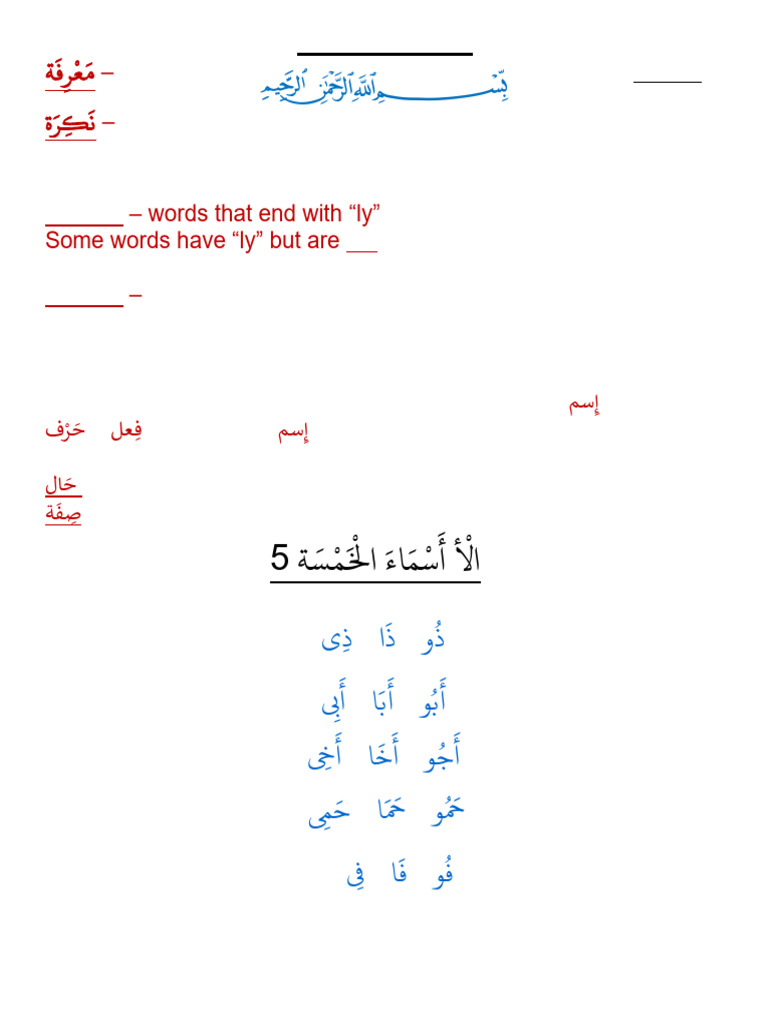 مَعْرِفَة –
بِسْمِ اللَّهِ الرَّحْمَٰنِ الرَّحِيمِ
نَكِرَة –
_______ – words that end with “ly”
Some words have “ly” but are ___
_______ –
إِسم
حَرْف فِعل إِسم
حَال
صِفَة
الْأ أَسْمَاءَ الْخَمْسَة 5
ذُو ذَا ذِى
أَبُو أَبَا أَبِى
أَجُو أَخَا أَخِى
حَمُو حَمَا حَمِى
فُو فَا فِى